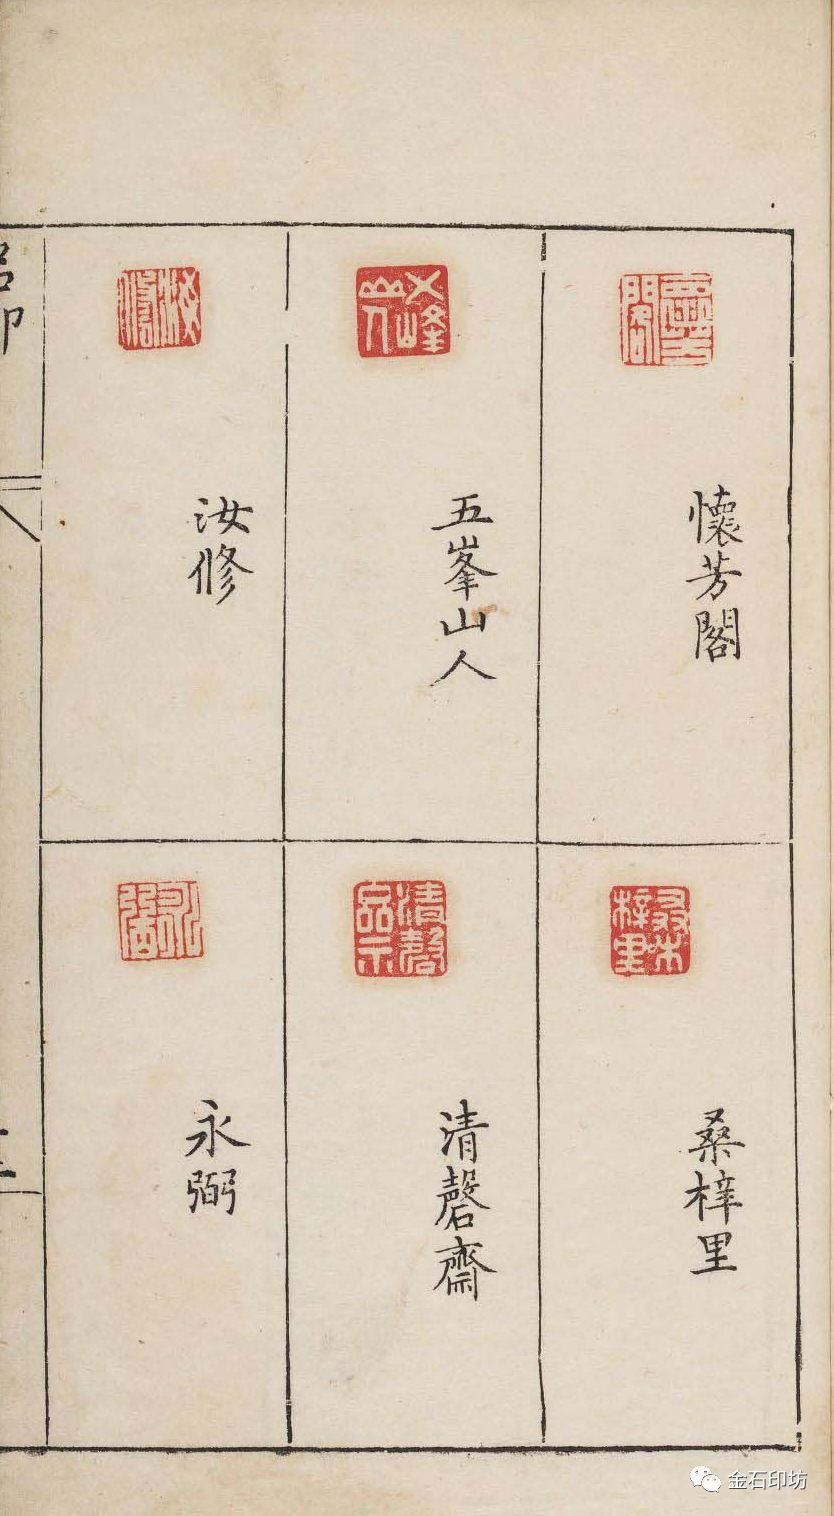 懷芳閣
五峯山人
汝修
桑梓里
清磬齋
永弼
金石印坊